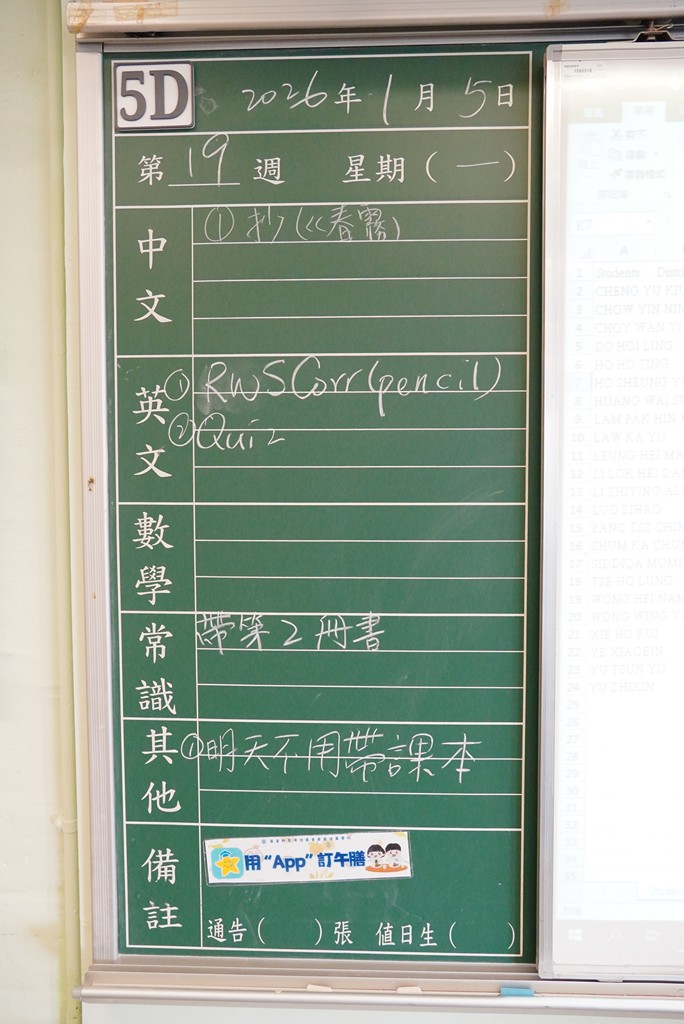 5D
2026年 1月 5日
第 19 週 星期 (一)
中文
① 抄(<<春霧)
英文
① RWS Corr (pencil)
② Quiz
數學
常識
帶第2冊書
其他
① 明天不用帶課本
備註
用“App”訂午膳
通告( )張 值日生( )
K7
A
1 Students
2 CHENG YU
3 CHOW YIN NIN
4 CHOY WAN YI
5 DO HOI LING
6 HO HO TING
7 HO SHEUNG
8 HUANG WAI
9 LAM PAK HIN
10 LAW KA YU
11 LEUNG HEI
12 LI LOK HEI
13 LI ZHIYING
14 LUO ZIHAO
15 TANG TSZ
16 SHUM KA
17 SIDDIQA
18 TSE HO LUNG
19 WONG HEI NAM
20 WONG WING
21 XIE HO RUI
22 YE XIAOBIN
23 YU TSUN YU
24 YU ZHIXIN
25
26
27
28
29
30
31
32
33
34
35